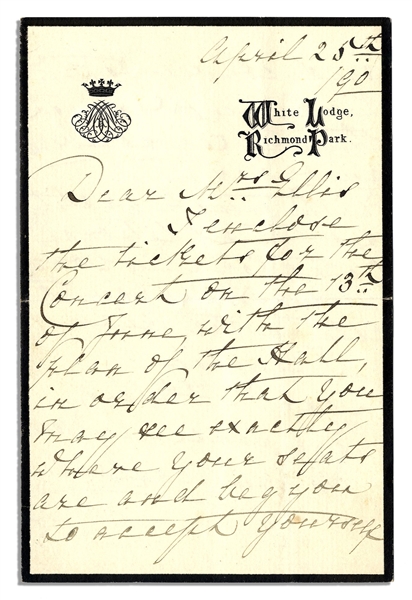 April 25th
/90
White Lodge,
Richmond Park.
Dear Mrs. Ellis
I enclose
the tickets for the
Concert on the 13th
of June, with the
plan of the Hall,
in order that you
may see exactly
where your seats
are and beg you
to accept yourself